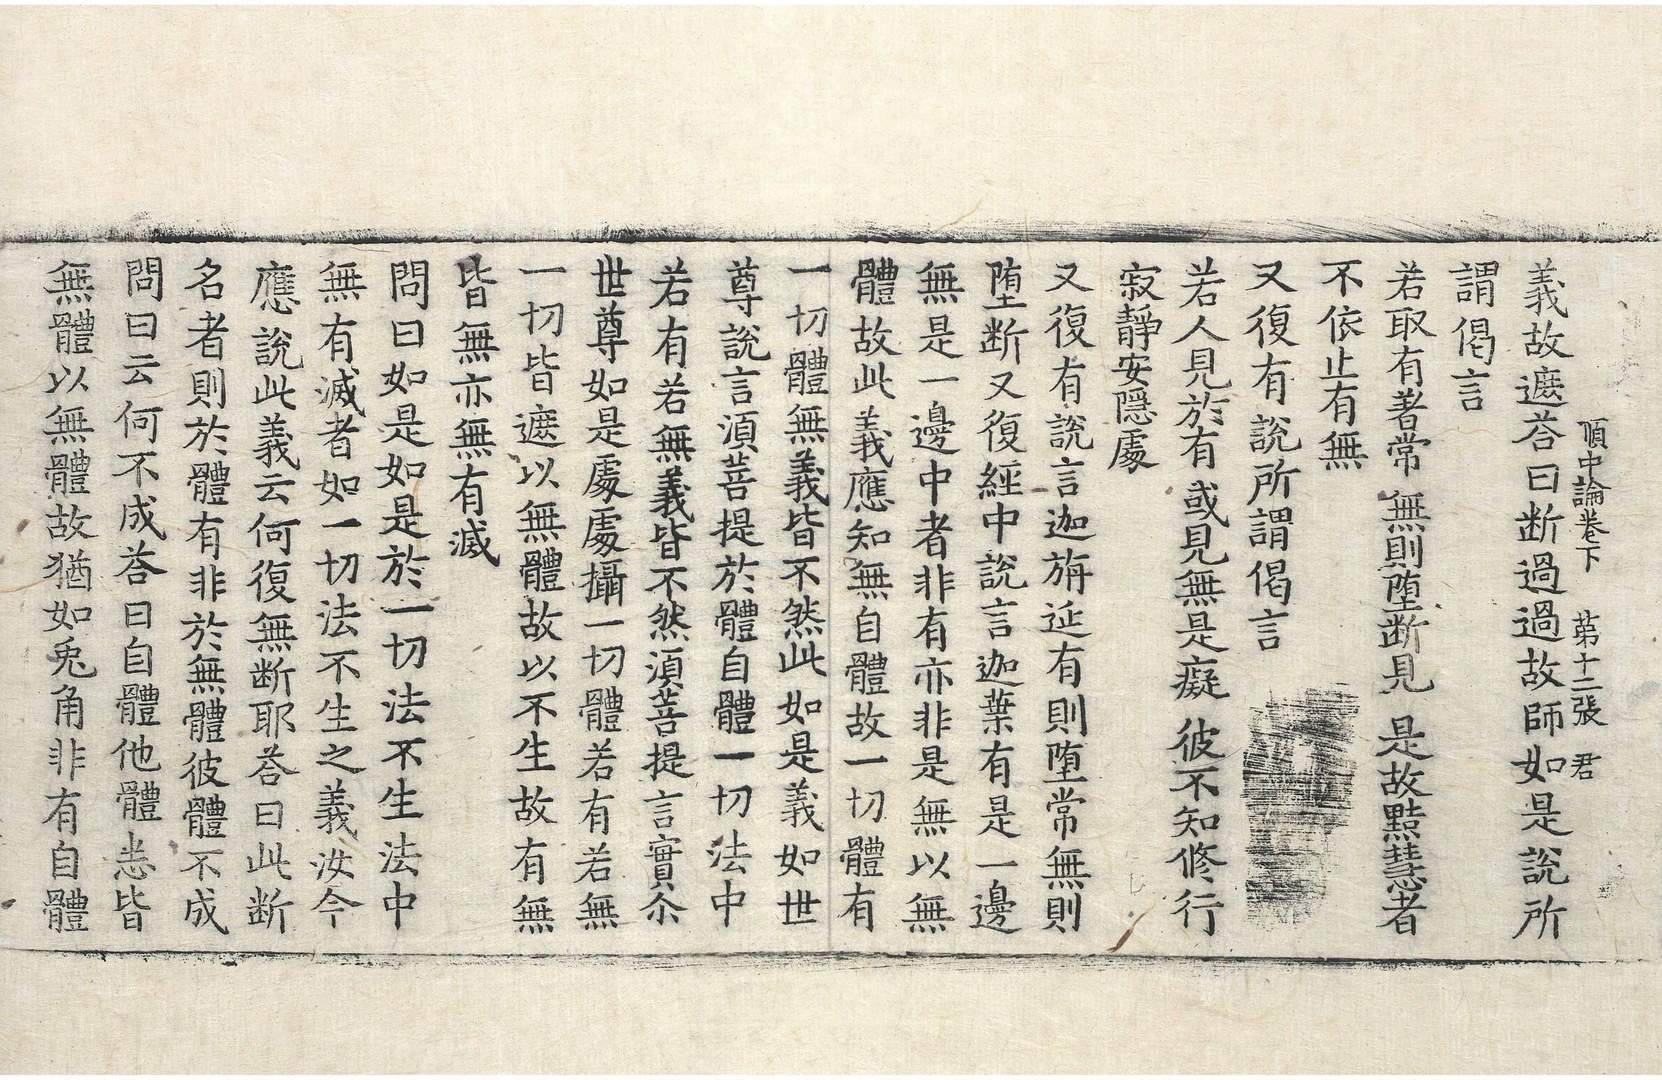 順中論卷下 第十二張 君
義故遮荅曰断過過故師如是說所
謂偈言
若取有著常 無則堕断見 是故黠慧者
不依止有無
又復有說所謂偈言
若人見於有 或見無是癡 彼不知修行
寂靜安隱處
又復有說言迦旃延有則堕常無則
堕断又復經中說言迦葉有是一邊
無是一邊中者非有亦非是無以無
體故此義應知無自體故一切體有
一切體無義皆不然此如是義如世
尊說言湏菩提於體自體一切法中
若有若無義皆不然湏菩提言實尒
世尊如是處處攝一切體若有若無
一切皆遮以無體故以不生故有無
皆無亦無有滅
問曰如是如是於一切法不生法中
無有滅者如一切法不生之義汝今
應說此義云何復無断耶荅曰此断
名者則於體有非於無體彼體不成
問曰云何不成荅曰自體他體悉皆
無體以無體故猶如兎角非有自體